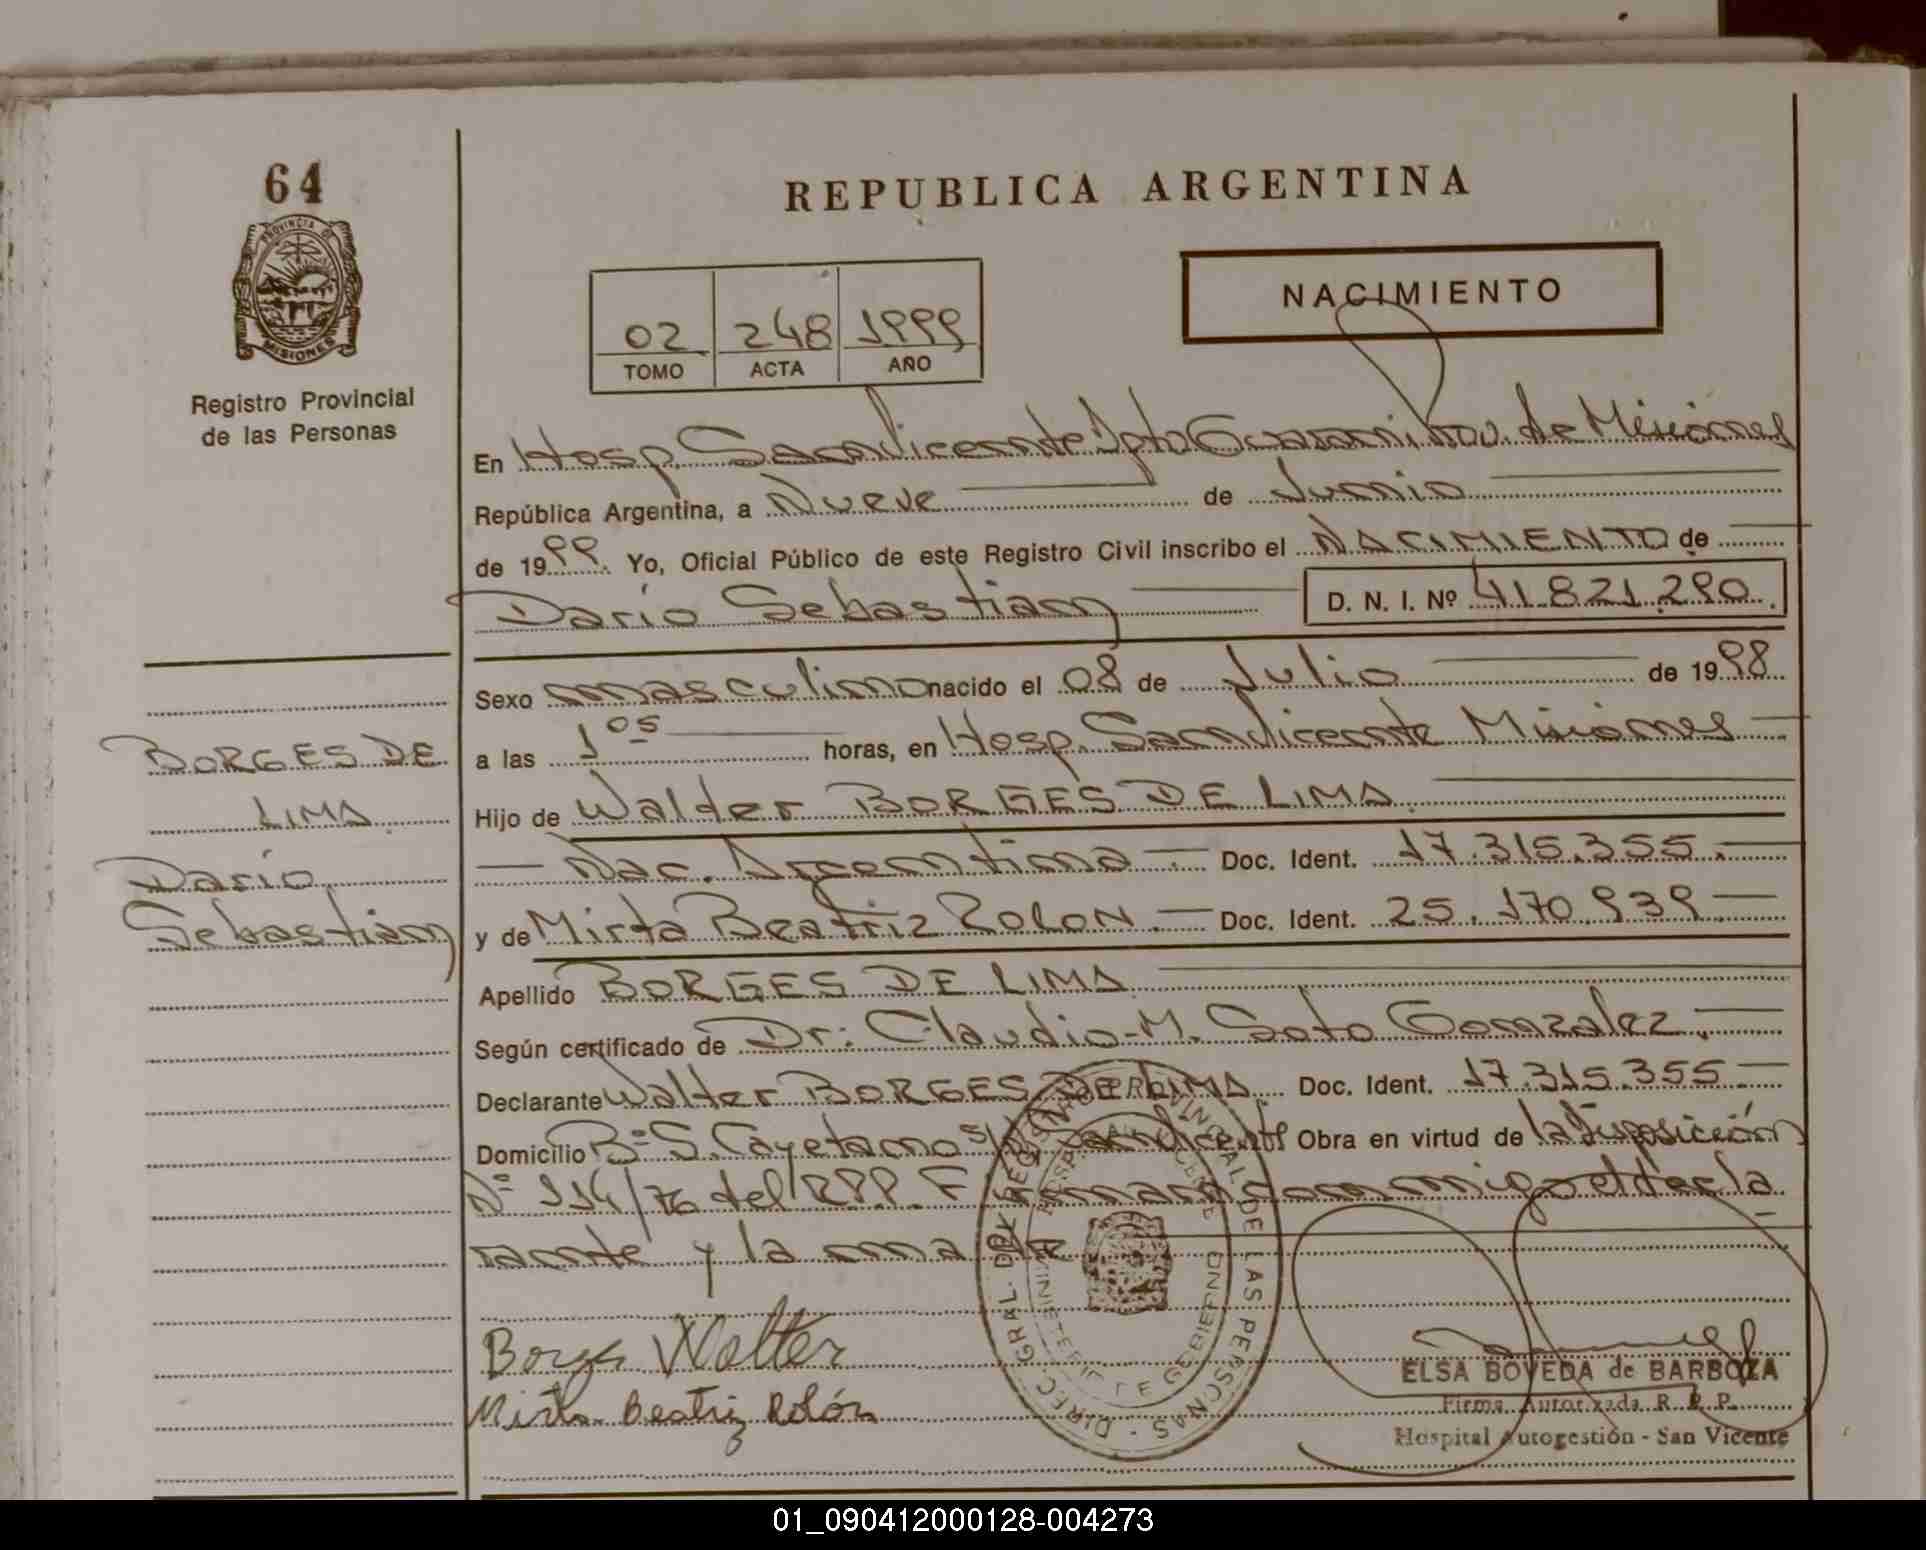 64
PROVINCIA DE
MISIONES
Registro Provincial
de las Personas
REPUBLICA ARGENTINA
NACIMIENTO
02 248 1999
TOMO ACTA AÑO
En Hosp. San Vicente Dpto Guarani Prov. de Misiones
República Argentina, a Nueve de Junio
de 1999. Yo, Oficial Público de este Registro Civil inscribo el NACIMIENTO de
Darío Sebastian D. N. I. Nº 41.821.290.
Sexo masculino nacido el 08 de Julio de 1998
a las 1 os horas, en Hosp. San Vicente Misiones
Hijo de Walter BORGES DE LIMA
Nac. Argentina Doc. Ident. 17.315.355.
y de Mirta Beatriz ROLON. Doc. Ident. 25.170.939
Apellido BORGES DE LIMA
Según certificado de Dr: Claudio M. Soto Gonzalez.
Declarante Walter BORGES DE LIMA. Doc. Ident. 17.315.355
Domicilio Bº S. Cayetano s/n San Vicente Obra en virtud de la Disposición
Nº 114/76 del RPP. Firman conmigo el decla
rante y la madre
BORGES DE
LIMA
Darío
Sebastián
Borges Walter
Mirta Beatriz Rolón
DIREC. GRAL. DEL REGISTRO PROVINCIAL DE LAS PERSONAS
MINISTERIO DE GOBIERNO
ELSA BOVEDA de BARBOZA
Firma Autorizada R. P. P.
Hospital Autogestión - San Vicente
01_090412000128-004273